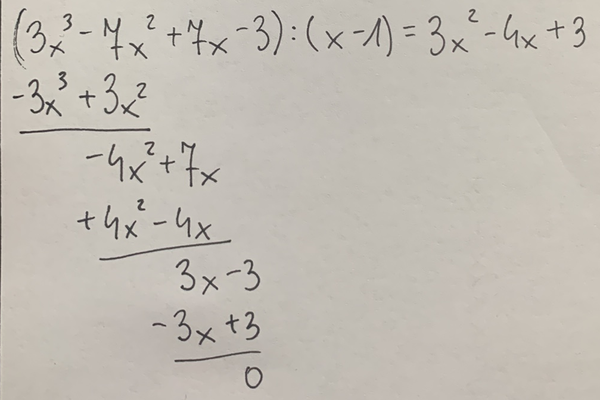 (3x³ - 7x² + 7x - 3) : (x - 1) = 3x² - 4x + 3
-3x³ + 3x²
-4x² + 7x
+4x² - 4x
3x - 3
-3x + 3
0